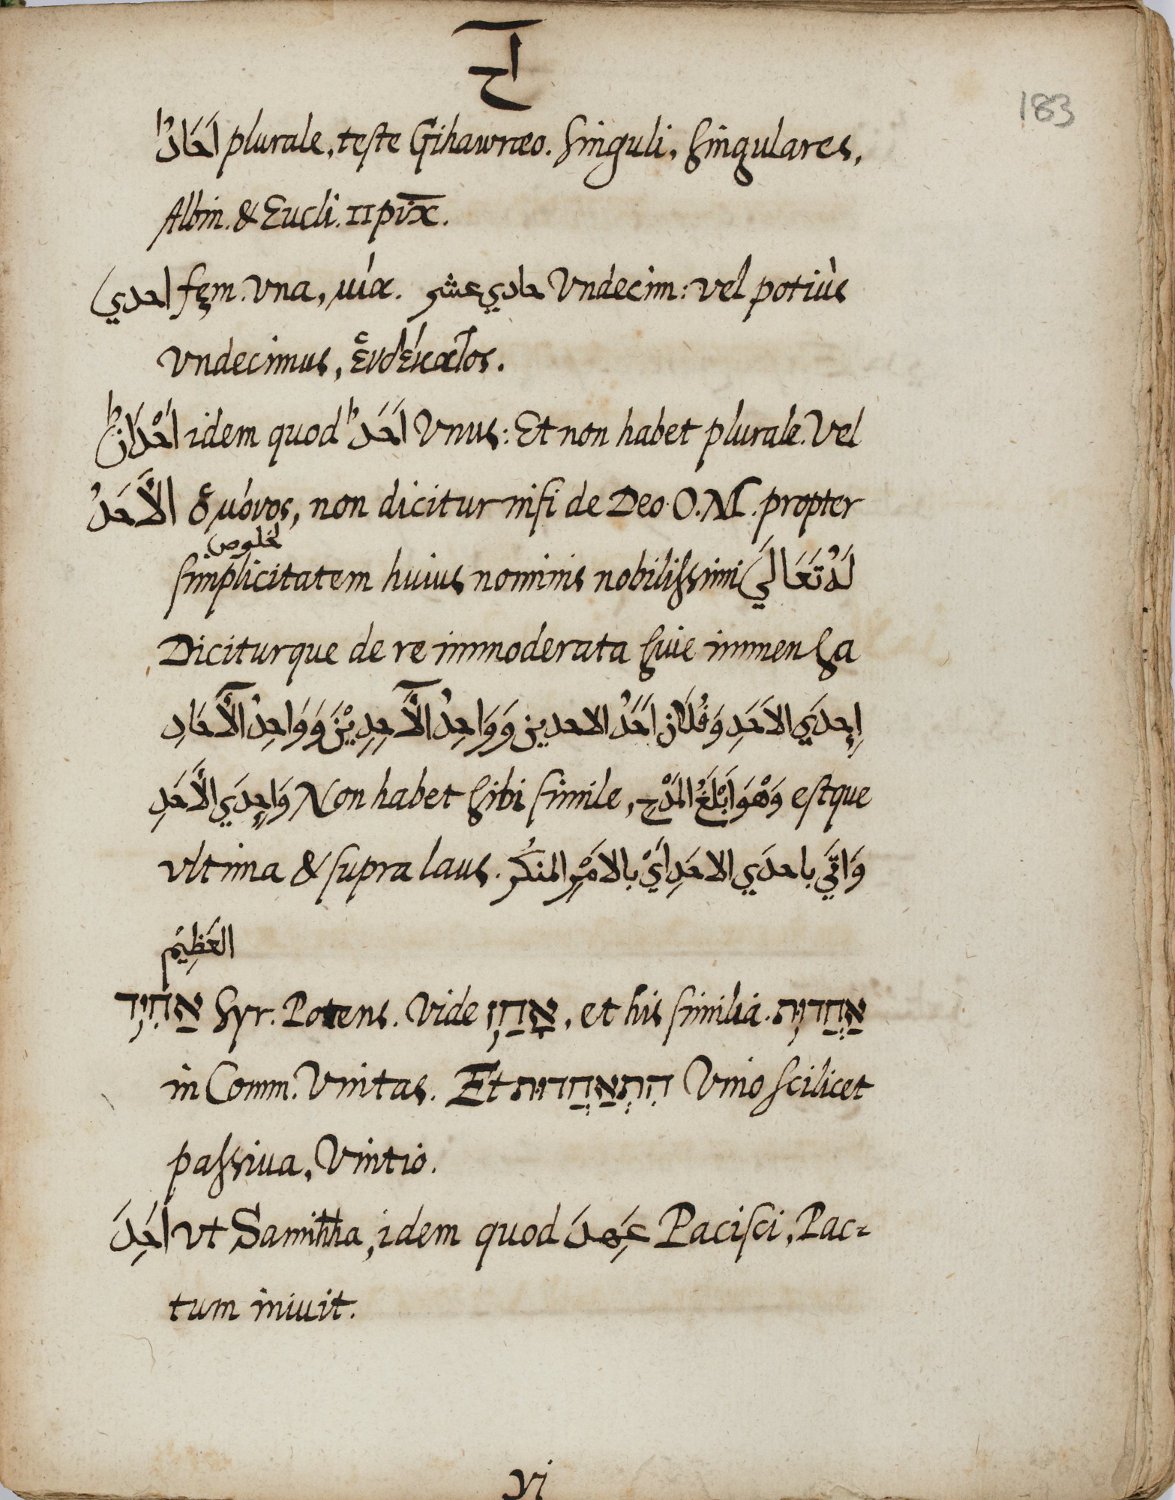 اح
183
اَحَادٌ plurale, teste Gihawræo. Singuli, Singulares,
Albin. & Eucli.
احدي fęm. Vna, μία. حادي عشر Vndecim: vel potiùs
Vndecimus, ἑνδέκατος.
اَحْدَانٌ idem quod اَحَدٌ Vnus: Et non habet plurale. Vel
الاَّحَدُ ὁ μόνος, non dicitur nisi de Deo O. M. propter
لخلوص
simplicitatem huius nominis nobilissimi لَهُ تَعَالَي
Diciturque de re immoderata siue immensa
اِحِدَي الاَحَدِ وَفُلَان اَحَدُ الاحدين وَوَاحِدُ الاَّحِدِيْنَ وَوَاحِدُ الاَّحَادِ
وَاِحِدَي الاَّحَدِ Non habet sibi simile, وَهْوَ اَبْلَغُ المَدْحِ estque
vltima & supra laus. وَاَتَي باحدَي الاحَدِ اَيْ بالاَمْرِ المنكر
العَظِيْم
אַחִיד Syr. Potens. Vide אָחַז, et his similia. אַחֲדוּת
in Comm. Vnitas. Et הִתְאַחֲדוּת Vnio scilicet
passiua, Vnitio.
اَحِدَ vt Samihha, idem quod عَهِدَ Pacisci, Pac=
tum iniuit.
yi